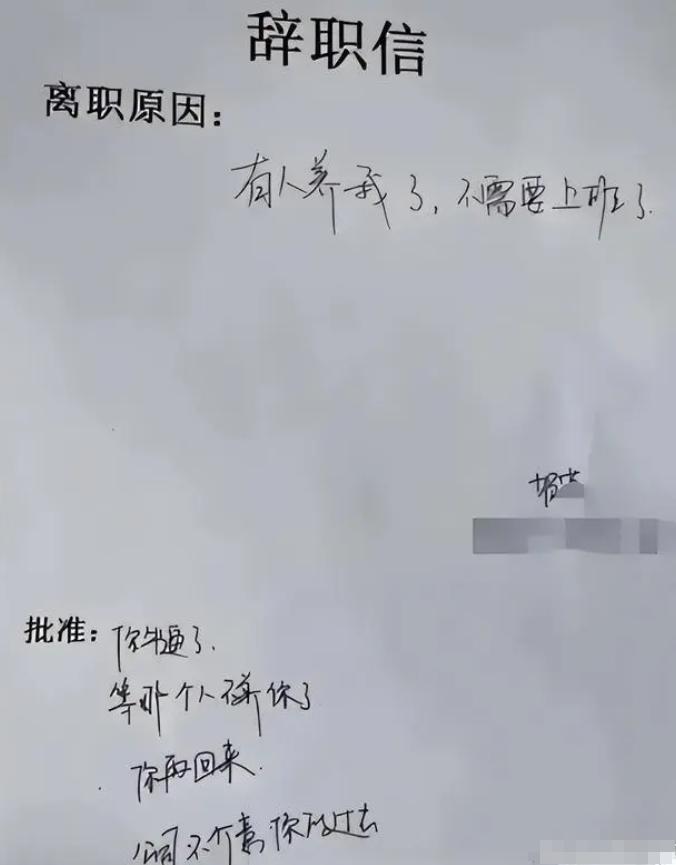 辞职信
离职原因：
有人养我了，不需要上班了.
批准：你牛逼了.
等那个人不养你了
你再回来.
公司不介意你的过去